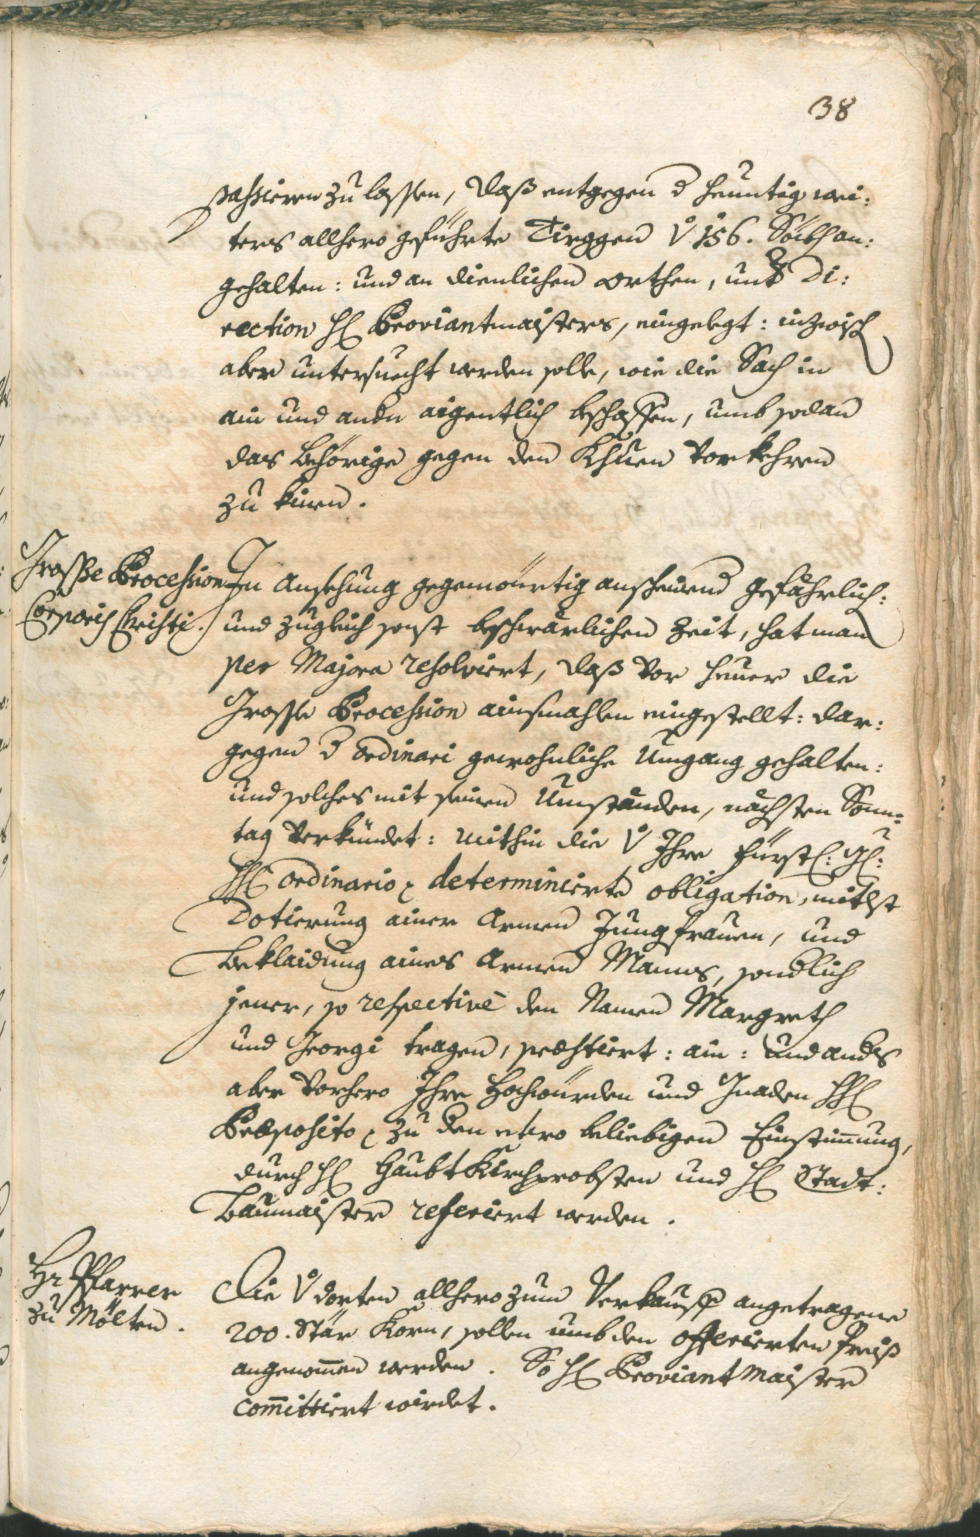 38
passieren zu lassen, daß entgegen d heuntig wei:
ters allhero geführte Tirggen v 156. Söckh an:
gehalten: und an dienlichen orthen, unter Di:
rection H Proviantmaisters, eingelegt: inzwisch
aber untersuecht werden solle, wie die Sach in
ain und andn aigentlich beschaffen, umb sodan
das Behörige gegen den Khuen vorkehren
zu kinen.
Grosse Procession
Corporis Christi.
In Ansehung gegenwürtig anscheinend gefährlich:
und zugleich sonst beschwärlichen Zeit, hat man
per Majora resolviert, daß vor heuer die
Grosse Procession ainsmahlen eingestellt: dar:
gegen d ordinari gewohnliche Umgang gehalten:
und solches mit seinen Umständen, nächsten Sonn:
tag verkündet: mithin die v Ihro Fürstl: G:
H ordinario determinierte obligation, mitlst
Dotierung ainer Armen Jungfrauen, und
Beklaidung aines Armen Manns, sondlich
jener, so respectivè den Namen Margreth
und Georgi tragen, præstiert: ain: und andes
aber vorhero Ihro Hochwürden und Gnaden H
Præposito, zu den etwo beliebigen Einstimmung,
durch H HaubtKirchprobsten und H Stadt:
Baumaister referiert werden.
Hr Pfarrer
zu Mölten.
Die v dorten allhero zum Verkauff angetragene
200. Stär Korn, sollen umb den offerierten Preiß
angenommen werden. So H Proviant Maister
committiert wirdet.